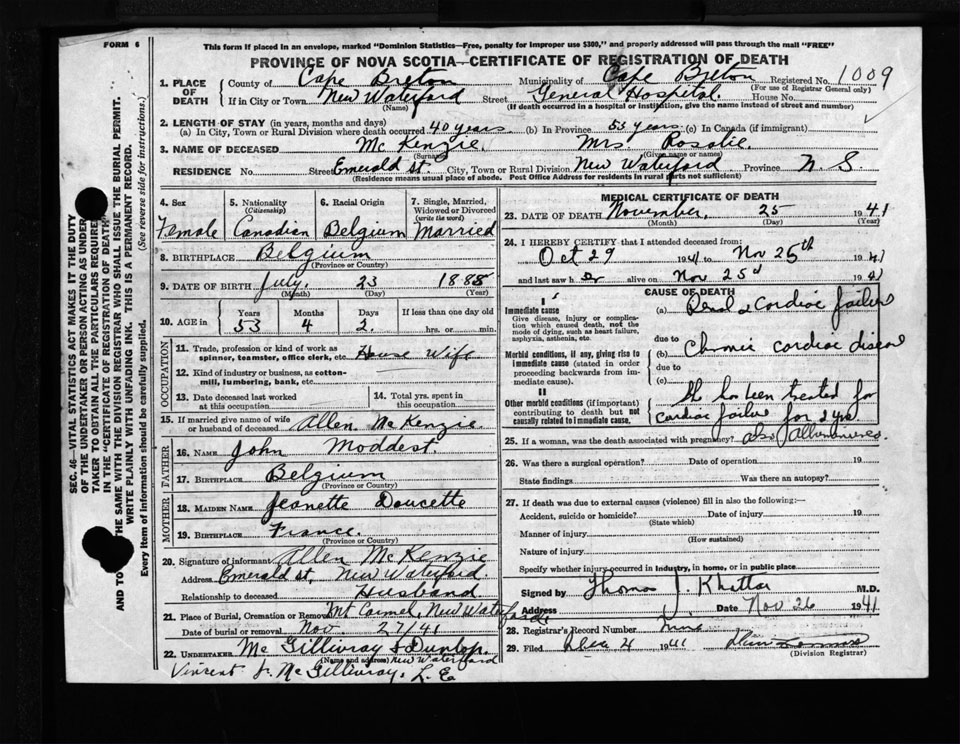 FORM 6
This form if placed in an envelope, marked "Dominion Statistics—Free, penalty for improper use $300," and properly addressed will pass through the mail "FREE"
PROVINCE OF NOVA SCOTIA—CERTIFICATE OF REGISTRATION OF DEATH
1. PLACE OF DEATH
County of Cape Breton Municipality of Cape Breton Registered No. 1009
(For use of Registrar General only)
If in City or Town New Waterford Street General Hospital. House No.
(Name) (If death occurred in a hospital or institution, give the name instead of street and number)
2. LENGTH OF STAY (in years, months and days)
(a) In City, Town or Rural Division where death occurred 40 years (b) In Province 53 years (c) In Canada (if immigrant)
3. NAME OF DECEASED Mc Kenzie. Mrs Rosalie.
(Surname) (Given name or names)
RESIDENCE No. Street Emerald st. City, Town or Rural Division New Waterford Province N. S.
(Residence means usual place of abode. Post Office Address for residents in rural parts not sufficient)
4. Sex
Female
5. Nationality
(Citizenship)
Canadian
6. Racial Origin
Belgium
7. Single, Married, Widowed or Divorced
(write the word)
Married
8. BIRTHPLACE Belgium
(Province or Country)
9. DATE OF BIRTH July. 23 1888
(Month) (Day) (Year)
10. AGE in
Years Months Days If less than one day old
53 4 2. hrs. or min.
OCCUPATION
11. Trade, profession or kind of work as spinner, teamster, office clerk, etc. House Wife
12. Kind of industry or business, as cotton-mill, lumbering, bank, etc.
13. Date deceased last worked at this occupation
14. Total yrs. spent in this occupation
15. If married give name of wife or husband of deceased Allen McKenzie
FATHER
16. NAME John Moddest.
17. BIRTHPLACE Belgium
(Province or Country)
MOTHER
18. MAIDEN NAME Jeanette Doucette
19. BIRTHPLACE France.
(Province or Country)
20. Signature of informant Allen McKenzie
Address Emerald st. New Waterford
Relationship to deceased Husband
21. Place of Burial, Cremation or Removal Mt Carmel, New Waterford
Date of burial or removal Nov 27/41
22. UNDERTAKER Mc Gillivray & Dunlop.
(Name and address) New Waterford
Vincent J. McGillivray, L. E
MEDICAL CERTIFICATE OF DEATH
23. DATE OF DEATH November, 25 1941
(Month) (Day) (Year)
24. I HEREBY CERTIFY that I attended deceased from:
Oct 29 1941 to Nov 25th 1941
and last saw h er alive on Nov 25d 1941
CAUSE OF DEATH
I
Immediate cause
Give disease, injury or complication which caused death, not the mode of dying, such as heart failure, asphyxia, asthenia, etc.
(a) & Cardiac failure
due to
Morbid conditions, if any, giving rise to immediate cause (stated in order proceeding backwards from immediate cause).
(b) Chronic cardiac disease
due to
(c)
II
Other morbid conditions (if important) contributing to death but not causally related to immediate cause.
has been treated for
Cardiac failure for 2 yrs
25. If a woman, was the death associated with pregnancy? also
26. Was there a surgical operation? Date of operation 19
State findings Was there an autopsy?
27. If death was due to external causes (violence) fill in also the following:—
Accident, suicide or homicide? Date of injury 19
(State which)
Manner of injury
(How sustained)
Nature of injury
Specify whether injury occurred in Industry, in home, or in public place
Signed by Thomas J. M.D.
Address Date Nov 26 1941
28. Registrar's Record Number
29. Filed Dec 4 1941
(Division Registrar)
SEC. 46—VITAL STATISTICS ACT MAKES IT THE DUTY OF THE UNDERTAKER OR PERSON ACTING AS UNDERTAKER TO OBTAIN ALL THE PARTICULARS REQUIRED IN THE "CERTIFICATE OF REGISTRATION OF DEATH"
AND TO THE SAME WITH THE DIVISION REGISTRAR WHO SHALL ISSUE THE BURIAL PERMIT.
WRITE PLAINLY WITH UNFADING INK. THIS IS A PERMANENT RECORD.
Every item of information should be carefully supplied. (See reverse side for instructions.)